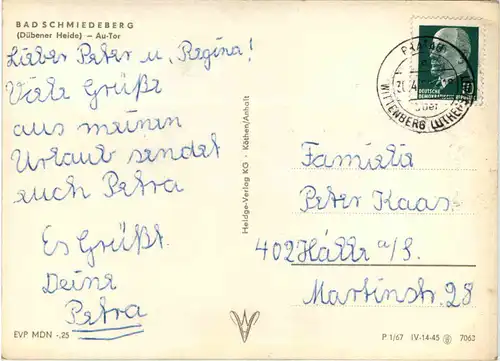 BAD SCHMIEDEBERG
(Dübener Heide) — Au-Tor
Lieber Peter u. Regina!
Viele Grüße
aus meinen
Urlaub sendet
euch Petra
Es Grüßt
Deine
Petra
EVP MDN -,25
Heldge-Verlag KG · Köthen/Anhalt
PRATAU
über
WITTENBERG LUTHERSTADT
DEUTSCHE
Familie
Peter Kaas
402 Halle a/S.
Martinstr. 28
P 1/67 IV-14-45 7063